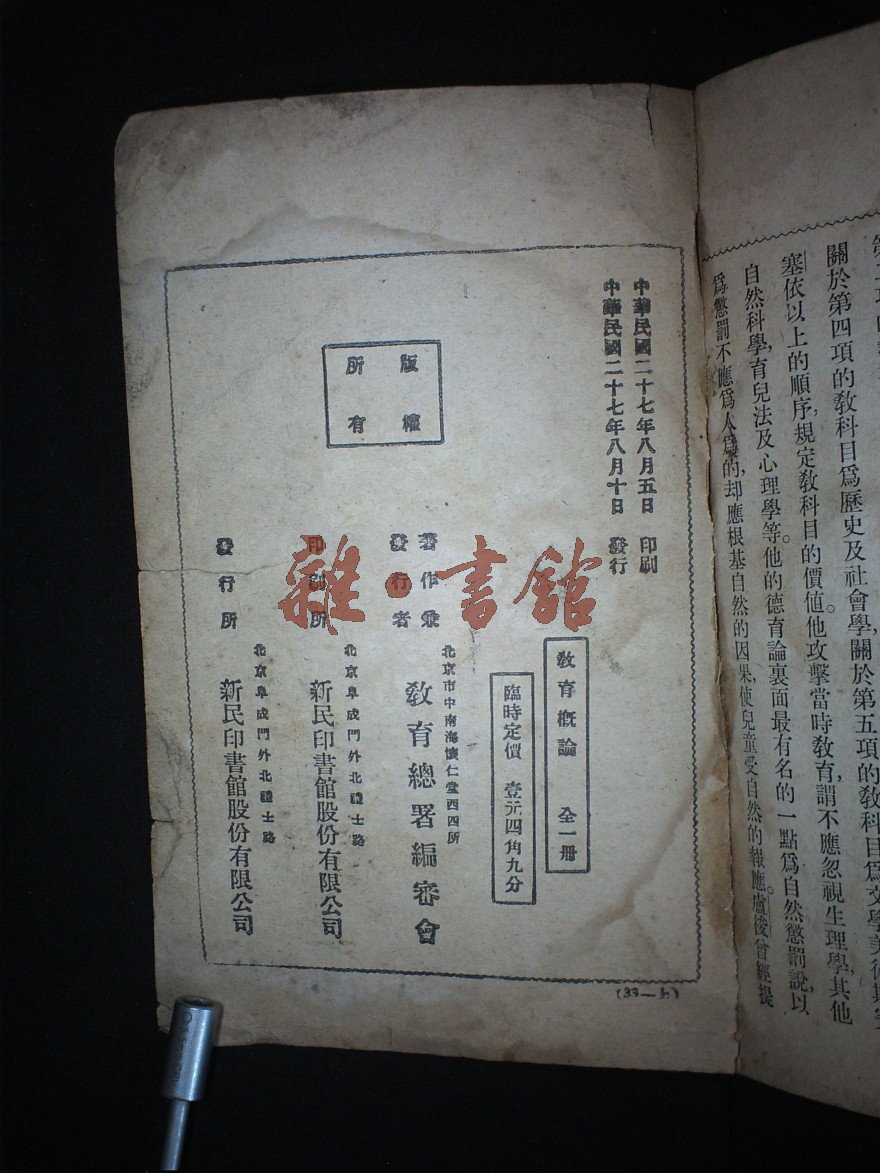 關於第四項的教科目爲歷史及社會學,關於第五項的教科目爲文學美術
塞依以上的順序,規定教科目的價値。他攻擊當時教育,謂不應忽視生理學,其他
自然科學,育兒法及心理學等。他的德育論裏面最有名的一點爲自然懲罰說,以
爲懲罰不應爲人爲的,却應根基自然的因果,使兒童受自然的報應。盧梭曾經提
中華民國二十七年八月五日 印刷
中華民國二十七年八月十日 發行
教育概論 全一冊
臨時定價 壹元四角九分
著作兼
發行者
北京市中南海懷仁堂西四所
教育總署編審會
印刷所
北京阜成門外北禮士路
新民印書館股份有限公司
發行所
北京阜成門外北禮士路
新民印書館股份有限公司
版權
所有
(33—上)
雜·書館